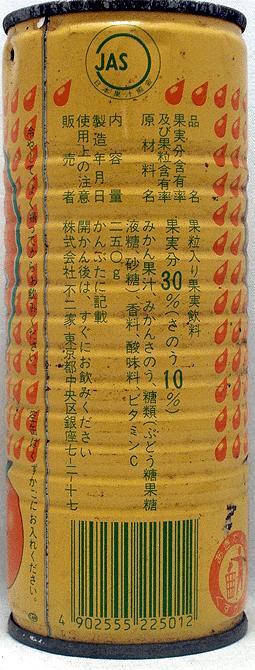 JAS
日本果汁協会
品名 果粒入り果実飲料
果実分含有率及び果粒含有率 果実分30%(さのう10%)
原材料名 みかん果汁、みかんさのう、糖類(ぶどう糖果糖
液糖、砂糖)、香料、酸味料、ビタミンC
内容量 二五〇g
製造年月日 かんぶたに記載
使用上の注意 開かん後は、すぐにお飲みください
販売者 株式会社不二家 東京都中央区銀座七-二-十七
冷やしてよく振ってからお飲みください。
かごにお入れください。
4 902555 225012